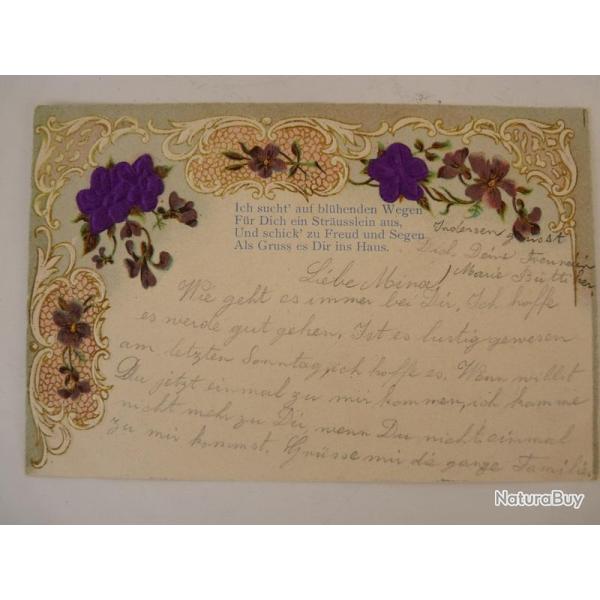 Ich sucht' auf blühenden Wegen
Für Dich ein Sträusslein aus,
Und schick' zu Freud und Segen
Als Gruss es Dir ins Haus.
Indessen grüsst
Dich Deine Freundin
Marie Bütti
Liebe Mina!
Wie geht es immer bei Dir, Ich hoffe
es werde gut gehen. Ist es lustig gewesen
am letzten Sonntag, ich hoffe es. Wenn willst
Du jetzt einmal zu mir kommen, ich komme
nicht mehr zu Dir, wenn Du nicht einmal
zu mir kommst. Grüsse mir die ganze Familie.
NaturaBuy